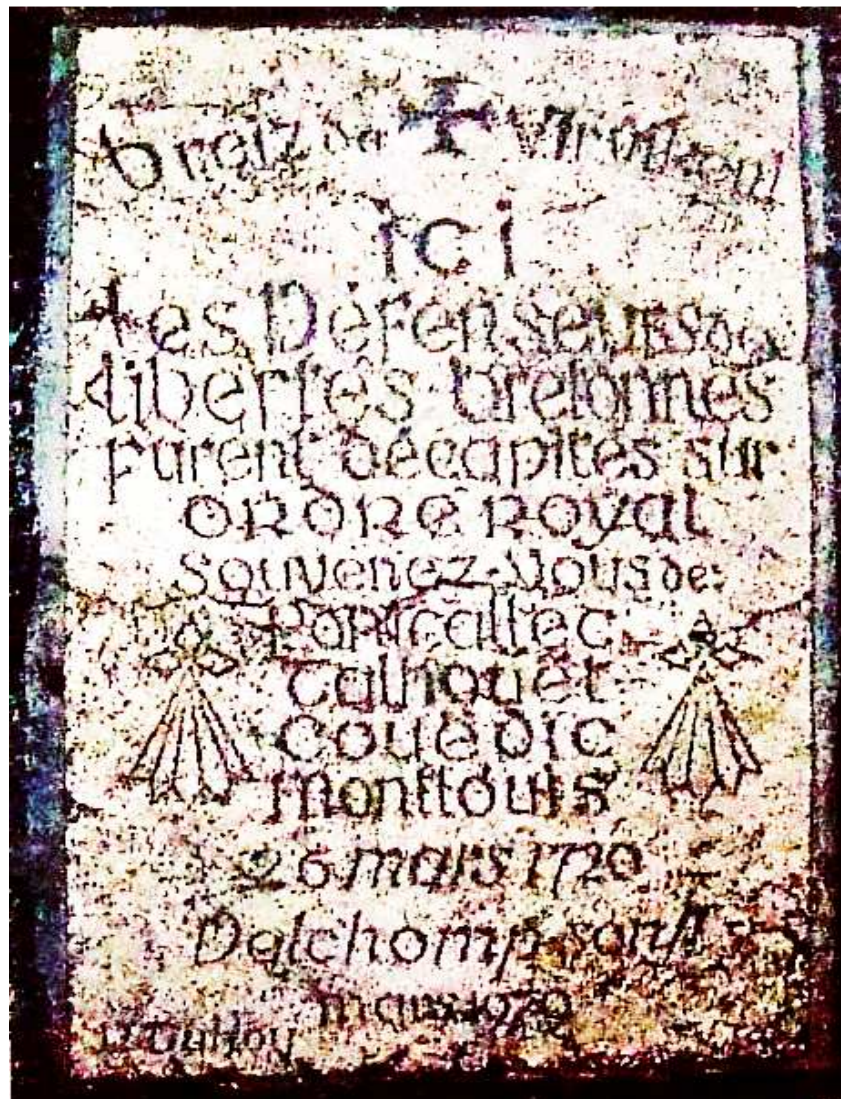 breiz da
ici
Les Défenseurs des
Libertés bretonnes
furent décapités sur
ordre royal
souvenez-vous de:
Pontcallec
Talhouët
Couëdic
Montlouis
26 mars 1720
Dalchomp sonj!
mars 1979